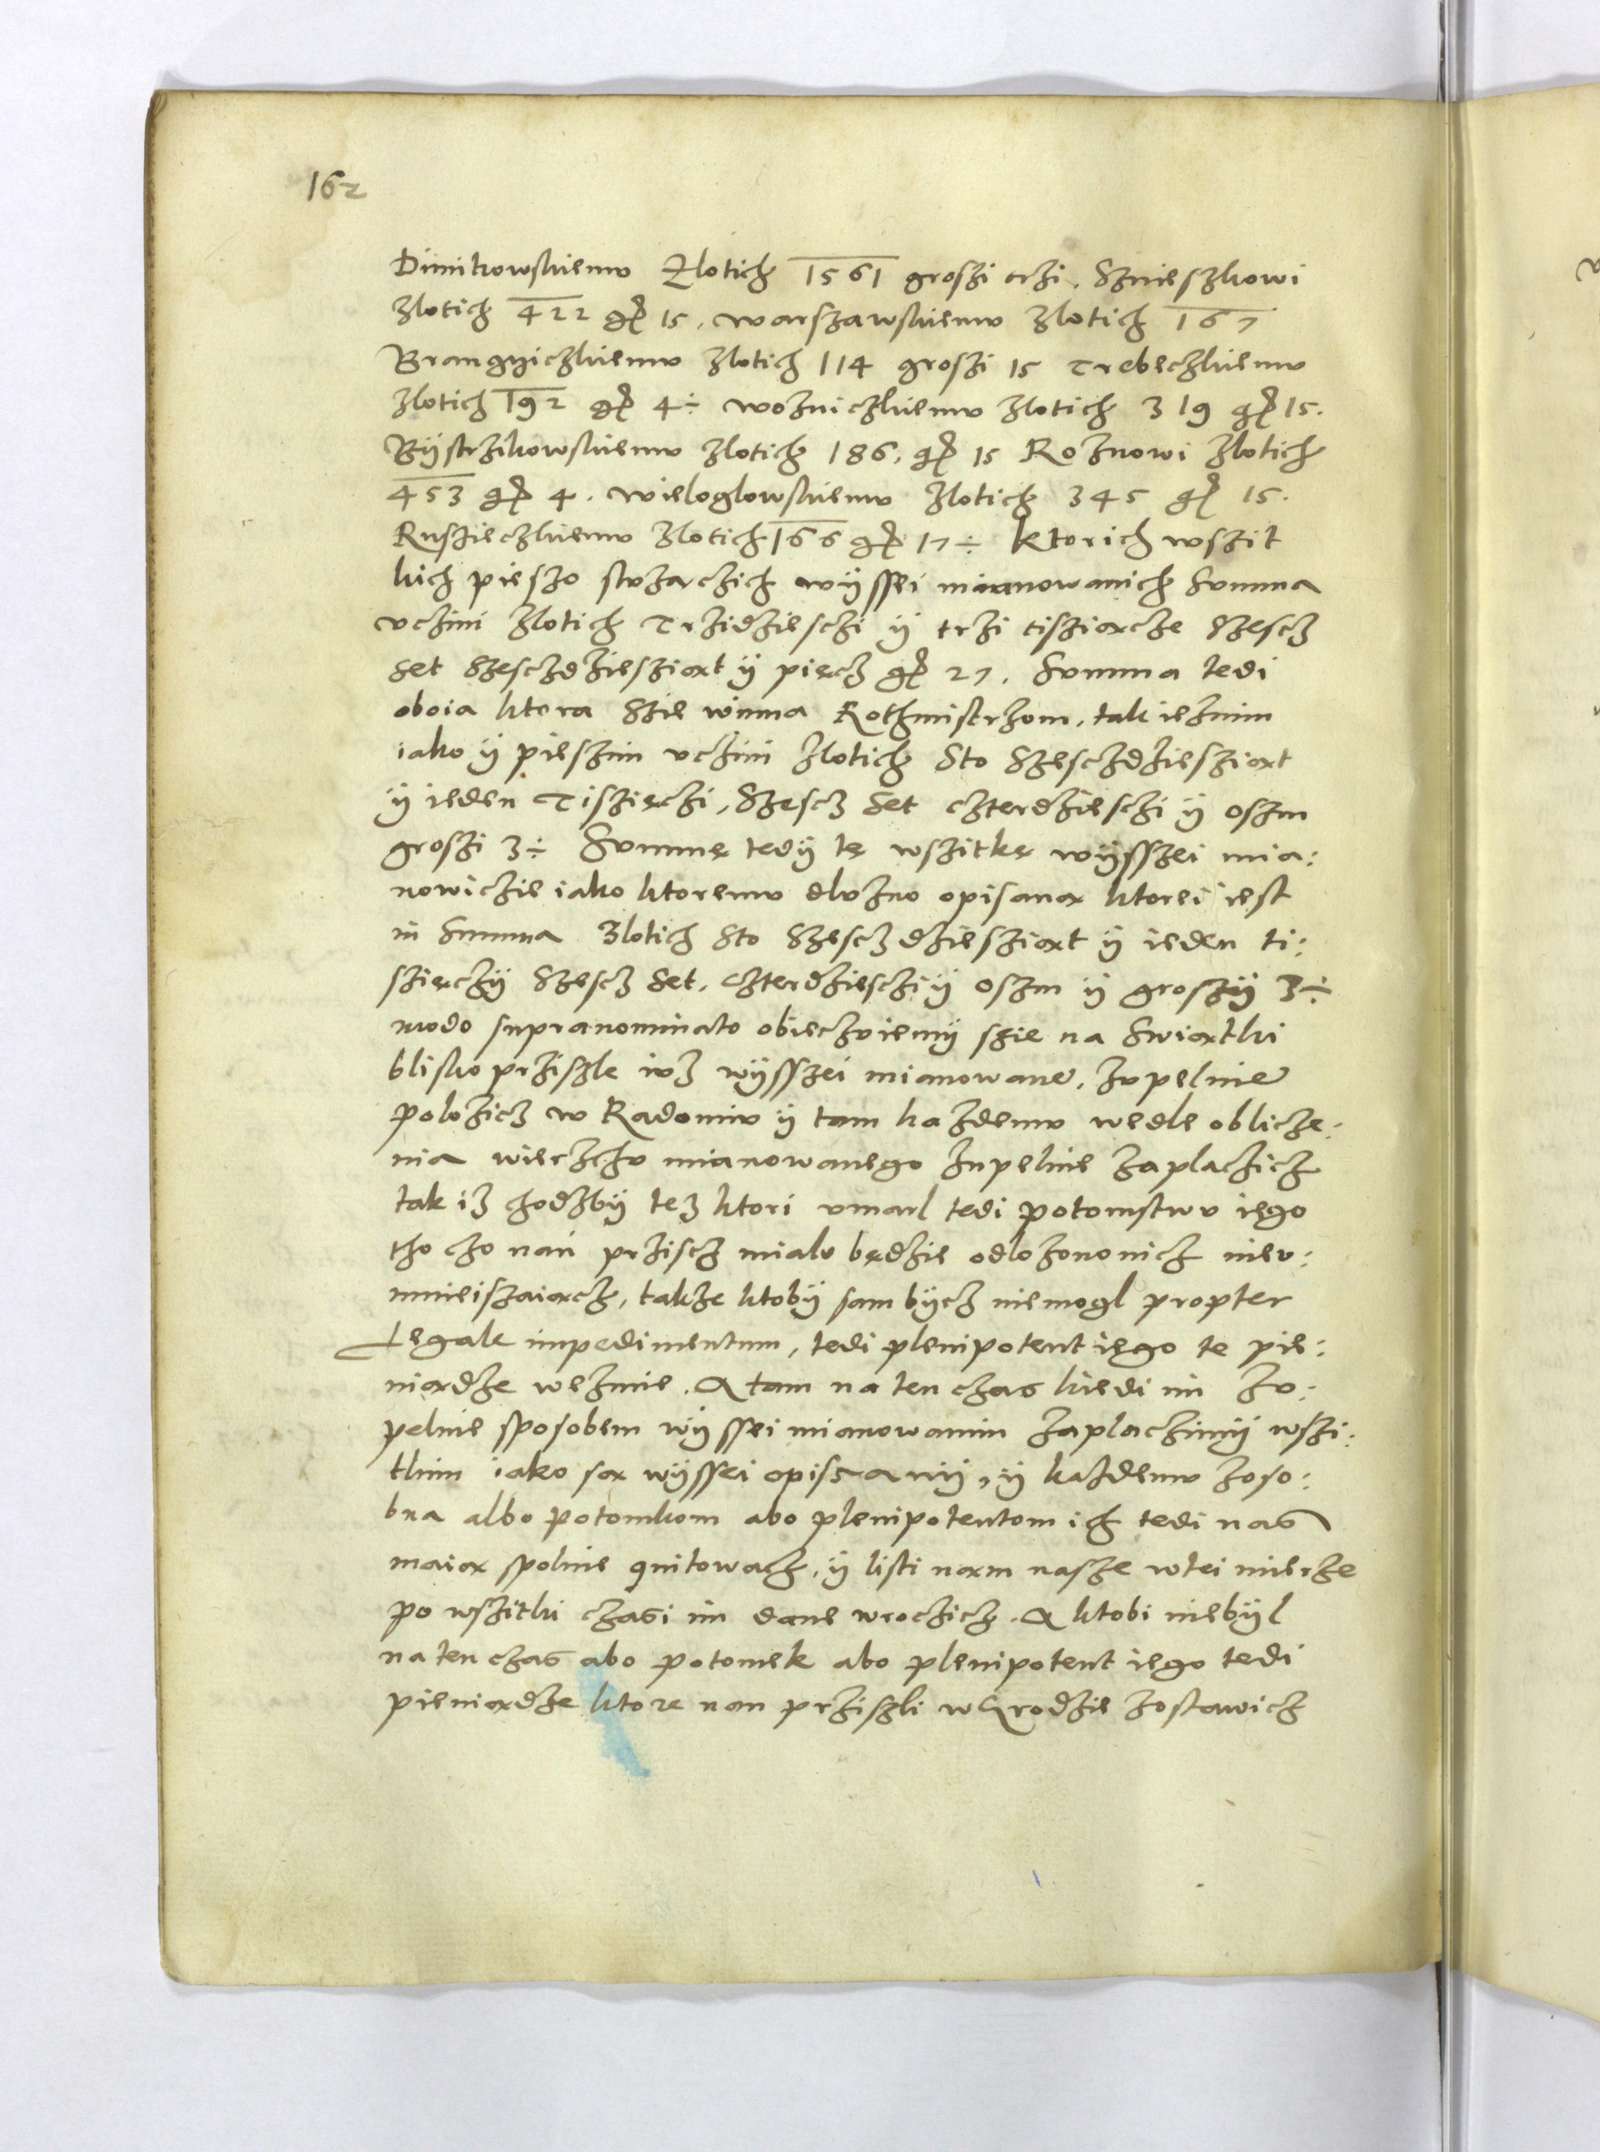 162
Dimitrowskiemv Zlotich 1561 groszi trzi. Sznieszkowi
zlotich 422 gr 15. warszawskiemv zlotich 167
Brangniczkiemv zlotich 114 groszi 15 Trebeczkiemv
zlotich 192 gr 4÷ wozniczkiemv zlotich 319 gr 15.
Bÿstrzikowskiemv zlotich 186, gr 15 Roznowi zlotich
453 gr 4. wieloglowskiemv zlotich 345 gr 15.
Ruszieczkiemv zlotich 166 gr 17÷ ktorich wszit
kich pieszo slvzaczich wÿssei mianowanich Svmma
vczini zlotich Trzidzieschi ÿ trzi tisziacze Szescz
set Szesczdziesziąt ÿ piecz gr 27. Svmma tedi
oboia ktora szie winna Rothmistrzom, tak ieznim
iako ÿ pieszim vczini zlotich Sto Szesczdziesziąt
ÿ ieden Tiszięczi, Szescz Set czterdzieschi ÿ oszm
groszi 3÷ Svmmę tedÿ tę wszitkę wÿsszei mia:
nowiczie iako ktoremv dlvzno opisaną ktorei iest
in Summa Zlotich Sto Szescz dziesziąt ÿ ieden ti:
szięczÿ Szescz Set, czterdzieschi ÿ oszm ÿ groszÿ 3÷
modo supranominato obieczviemÿ szie na Swiątki
blisko prziszle ivz wÿsszei mianowane, zvpelnie
polozicz w Radomiv ÿ tam kazdemv wedle oblicze:
nia wierzchv mianowanego zupelnie zaplaczicz
tak iz chodzbÿ tez ktori vmarl tedi potomstwv iego
tho czo nań przischz mialo będzie odlozono nicz niev:
mnieiszaiącz, takze ktobÿ sam bÿcz niemogl propter
legale impedimentum, tedi plenipotent iego te pie:
niądze wezmie. A tam na ten czas kiedi im zv:
pelnie sposobem wÿssei mianowanim zaplaczimÿ wszi:
tkim iako są wÿssei opisanÿ, ÿ kazdemv zoso:
bna albo potomkom abo plenipotentom ich tedi nas
maią spolnie quitowacz, ÿ listi nąm nasze wtei mierze
po wszitki czasi im dane wroczicz. A ktobi niebÿl
na ten czas abo potomek abo plenipotent iego tedi
pieniądze ktore nan prziszli wGrodzie zostawicz